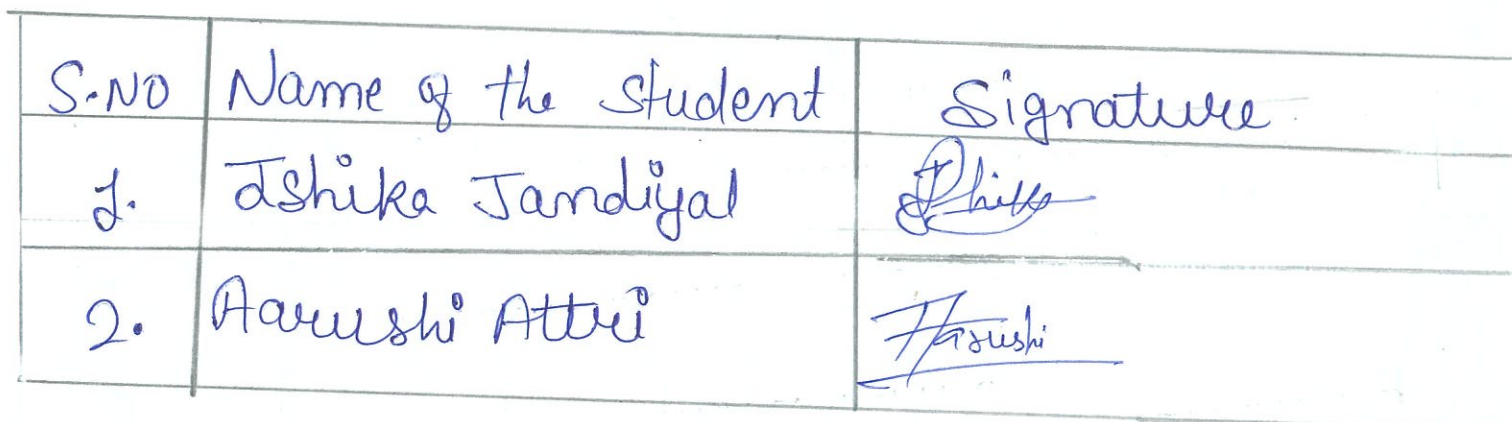 S.NO Name of the Student Signature
1. Ishika Jandiyal
2. Aarushi Attri Aarushi